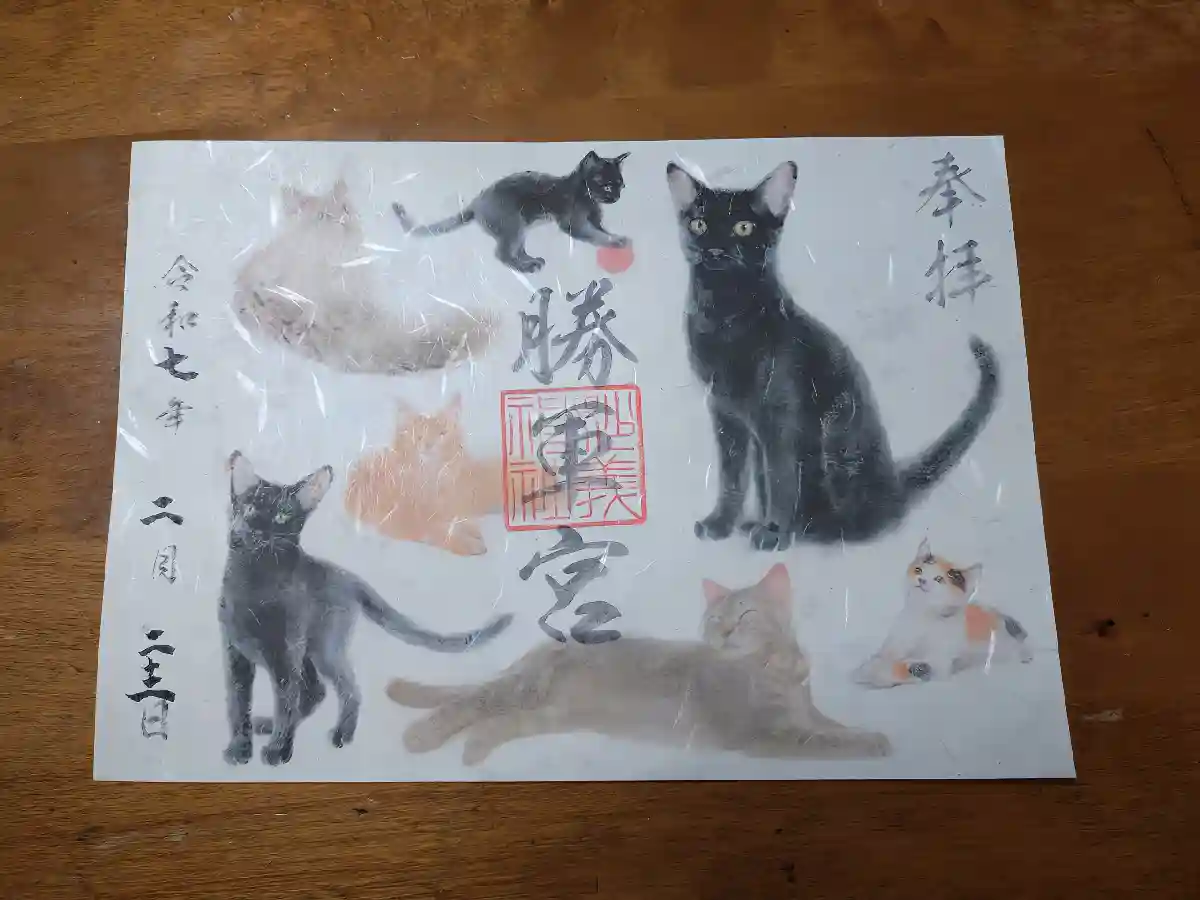 奉拝
勝軍宮
令和七年 二月 二十二日